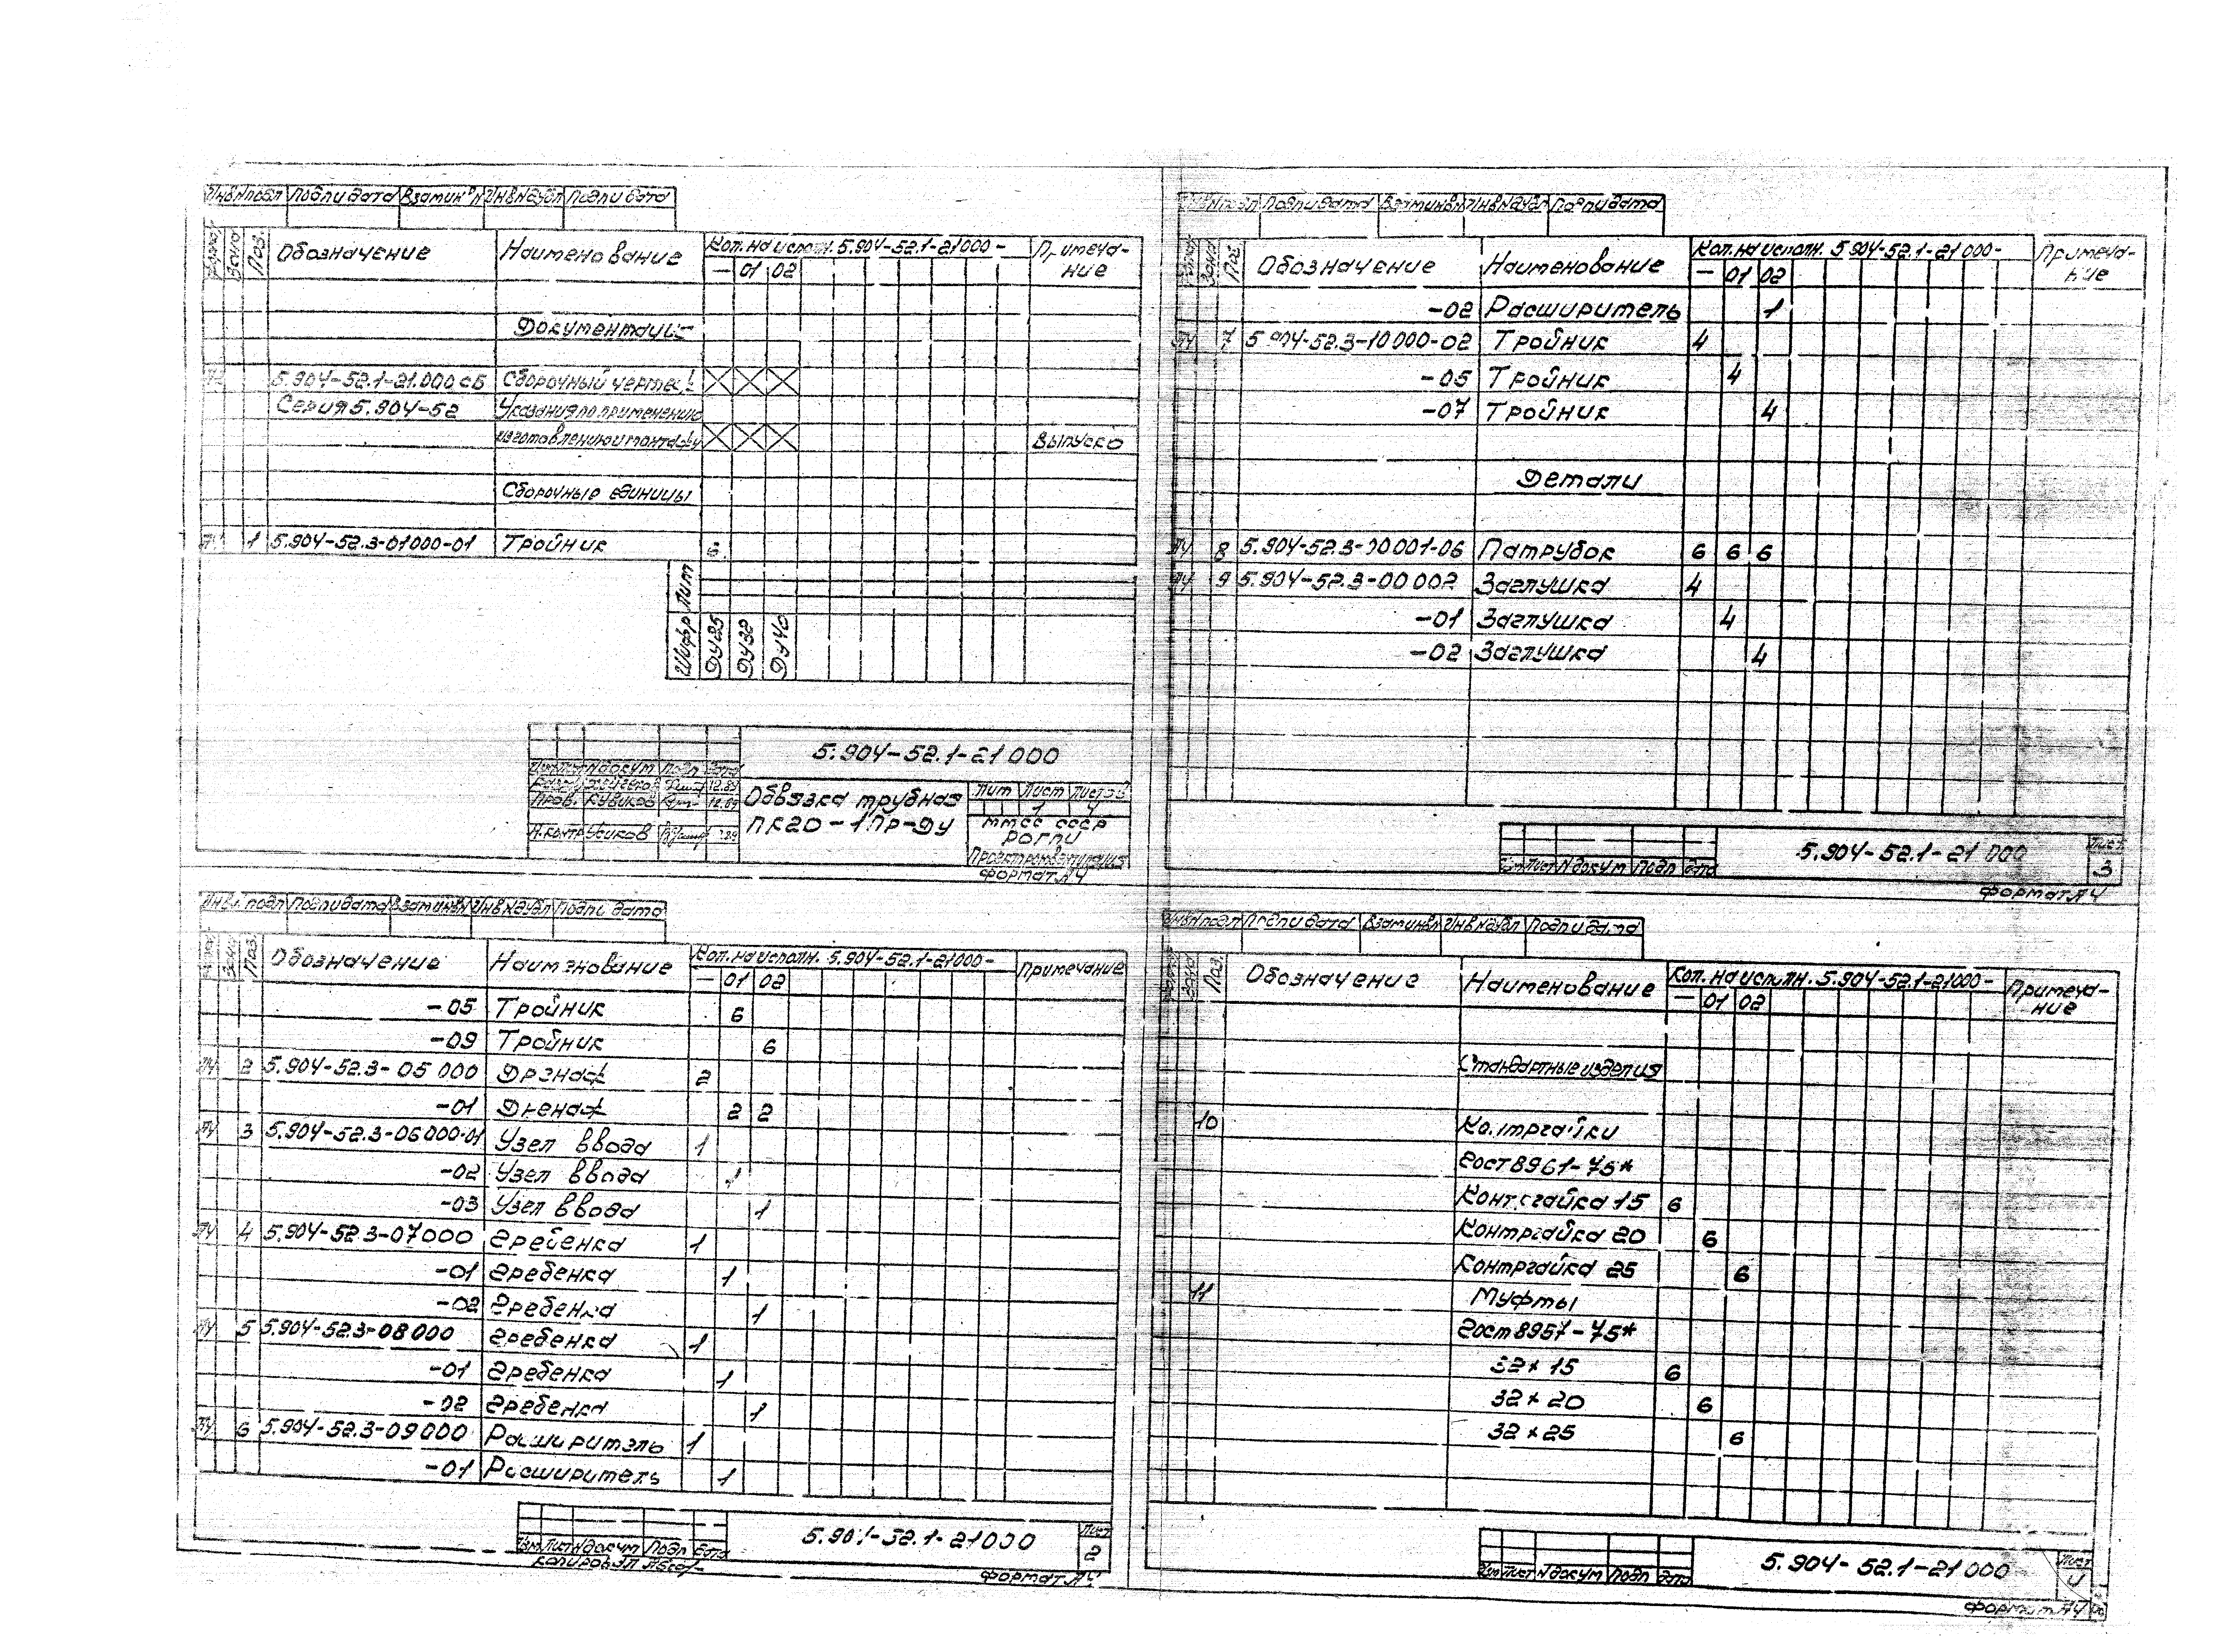 Подпи дата Взам инв N Инв N дубл Подпи дата
Поз. Обозначение Наименование Кол. на исполн. 5.904-52.1-21000- Примеча-
ние
— 01 02
Документация
5.904-52.1-21.000 СБ Сборочный
Серия 5.904-52 Указания по применению
изготовлению и монтажу выпуск 0
Сборочные единицы
1 5.904-52.3-01000-01 Тройник 6
Лит
Шифр ДУ25 ДУ32 ДУ40
5.904-52.1-21 000
Обвязка трубная
ПК20-1.ПР-ДУ
Лит Лист Листов
1 4
ММСС СССР
РОГПИ
Проектпромвентиляция
Пров. Куликов 12.89
Н.контр Усиков
Формат А4
Подпи дата Взам инв N Инв N дубл Подпи дата
Поз. Обозначение Наименование Кол. на исполн. 5.904-52.1-21000- Примечание
— 01 02
-05 Тройник 6
-09 Тройник 6
А4 2 5.904-52.3-05 000 Дренаж 2
-01 Дренаж 2 2
А4 3 5.904-52.3-06000-01 Узел ввода 1
-02 Узел ввода 1
-03 Узел ввода 1
А4 4 5.904-52.3-07000 Гребенка 1
-01 Гребенка 1
-02 Гребенка 1
А4 5 5.904-52.3-08000 Гребенка 1
-01 Гребенка 1
-02 Гребенка 1
А4 6 5.904-52.3-09000 Расширитель 1
-01 Расширитель 1
5.904-52.1-21000
Лист
2
Изм Лист N докум Подп Дата
Копировал
Формат А4
Подпи дата Взам инв N Инв N дубл Подпи дата
Зона Поз. Обозначение Наименование Кол. на исполн. 5.904-52.1-21000- Примеча-
ние
— 01 02
-02 Расширитель 1
А4 7 5.904-52.3-10000-02 Тройник 4
-05 Тройник 4
-07 Тройник 4
Детали
А4 8 5.904-52.3-00001-06 Патрубок 6 6 6
А4 9 5.904-52.3-00002 Заглушка 4
-01 Заглушка 4
-02 Заглушка 4
5.904-52.1-21 000
Лист
3
Изм Лист N докум Подп Дата
Формат А4
Инв N подл Подпи дата Взам инв N Инв N дубл Подпи дата
Зона Поз. Обозначение Наименование Кол. на исполн. 5.904-52.1-21000- Примеча-
ние
— 01 02
Стандартные изделия
10 Контргайки
Гост 8961-75*
Контргайка 15 6
Контргайка 20 6
Контргайка 25 6
11 Муфты
Гост 8957-75*
32×15 6
32×20 6
32×25 6
5.904-52.1-21000
Лист
4
Изм Лист N докум Подп Дата
Формат А4